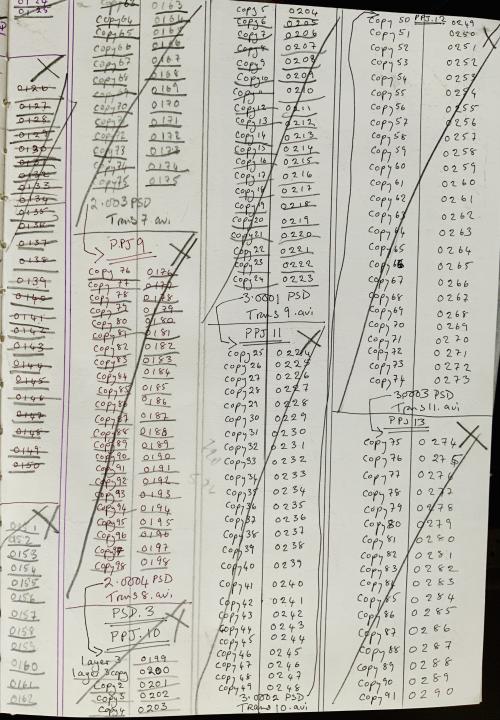 0125
0126
0127
0128
0129
0130
0131
0132
0133
0134
0135
0136
0137
0138
0139
0140
0141
0142
0143
0144
0145
0146
0147
0148
0149
0150
0151
0153
0154
0155
0156
0157
0158
0159
0160
0161
0162
0163
Copy 64 0164
Copy 65 0165
Copy 66 0166
Copy 67 0167
Copy 68 0168
Copy 69 0169
Copy 70 0170
Copy 71 0171
Copy 72 0172
Copy 73 0173
Copy 74 0174
Copy 75 0175
2.0003 PSD
Trans 7.avi
PPJ 9
Copy 76 0176
Copy 77 0177
Copy 78 0178
Copy 79 0179
Copy 80 0180
Copy 81 0181
Copy 82 0182
Copy 83 0183
Copy 84 0184
Copy 85 0185
Copy 86 0186
Copy 87 0187
Copy 88 0188
Copy 89 0189
Copy 90 0190
Copy 91 0191
Copy 92 0192
Copy 93 0193
Copy 94 0194
Copy 95 0195
Copy 96 0196
Copy 97 0197
Copy 98 0198
2.0004 PSD
Trans 8.avi
PSD.3
PPJ.10
Layer 3 0199
Layer 3 copy 0200
Copy 2 0201
Copy 3 0202
Copy 4 0203
Copy 5 0204
Copy 6 0205
Copy 7 0206
Copy 8 0207
Copy 9 0208
Copy 10 0209
Copy 11 0210
Copy 12 0211
Copy 13 0212
Copy 14 0213
Copy 15 0214
Copy 16 0215
Copy 17 0216
Copy 18 0217
Copy 19 0218
Copy 20 0219
Copy 21 0220
Copy 22 0221
Copy 23 0222
Copy 24 0223
3.0001 PSD
Trans 9.avi
PPJ 11
Copy 25 0224
Copy 26 0225
Copy 27 0226
Copy 28 0227
Copy 29 0228
Copy 30 0229
Copy 31 0230
Copy 32 0231
Copy 33 0232
Copy 34 0233
Copy 35 0234
Copy 36 0235
Copy 37 0236
Copy 38 0237
Copy 39 0238
Copy 40 0239
Copy 41 0240
Copy 42 0241
Copy 43 0242
Copy 44 0243
Copy 45 0244
Copy 46 0245
Copy 47 0246
Copy 48 0247
Copy 49 0248
3.0002 PSD
Trans 10.avi
Copy 50 PPJ.12 0249
Copy 51 0250
Copy 52 0251
Copy 53 0252
Copy 54 0253
Copy 55 0254
Copy 56 0255
Copy 57 0256
Copy 58 0257
Copy 59 0258
Copy 60 0259
Copy 61 0260
Copy 62 0261
Copy 63 0262
Copy 64 0263
Copy 65 0264
Copy 66 0265
Copy 67 0266
Copy 68 0267
Copy 69 0268
Copy 70 0269
Copy 71 0270
Copy 72 0271
Copy 73 0272
Copy 74 0273
3.0003 PSD
Trans 11.avi
PPJ 13
Copy 75 0274
Copy 76 0275
Copy 77 0276
Copy 78 0277
Copy 79 0278
Copy 80 0279
Copy 81 0280
Copy 82 0281
Copy 83 0282
Copy 84 0283
Copy 85 0284
Copy 86 0285
Copy 87 0286
Copy 88 0287
Copy 89 0288
Copy 90 0289
Copy 91 0290